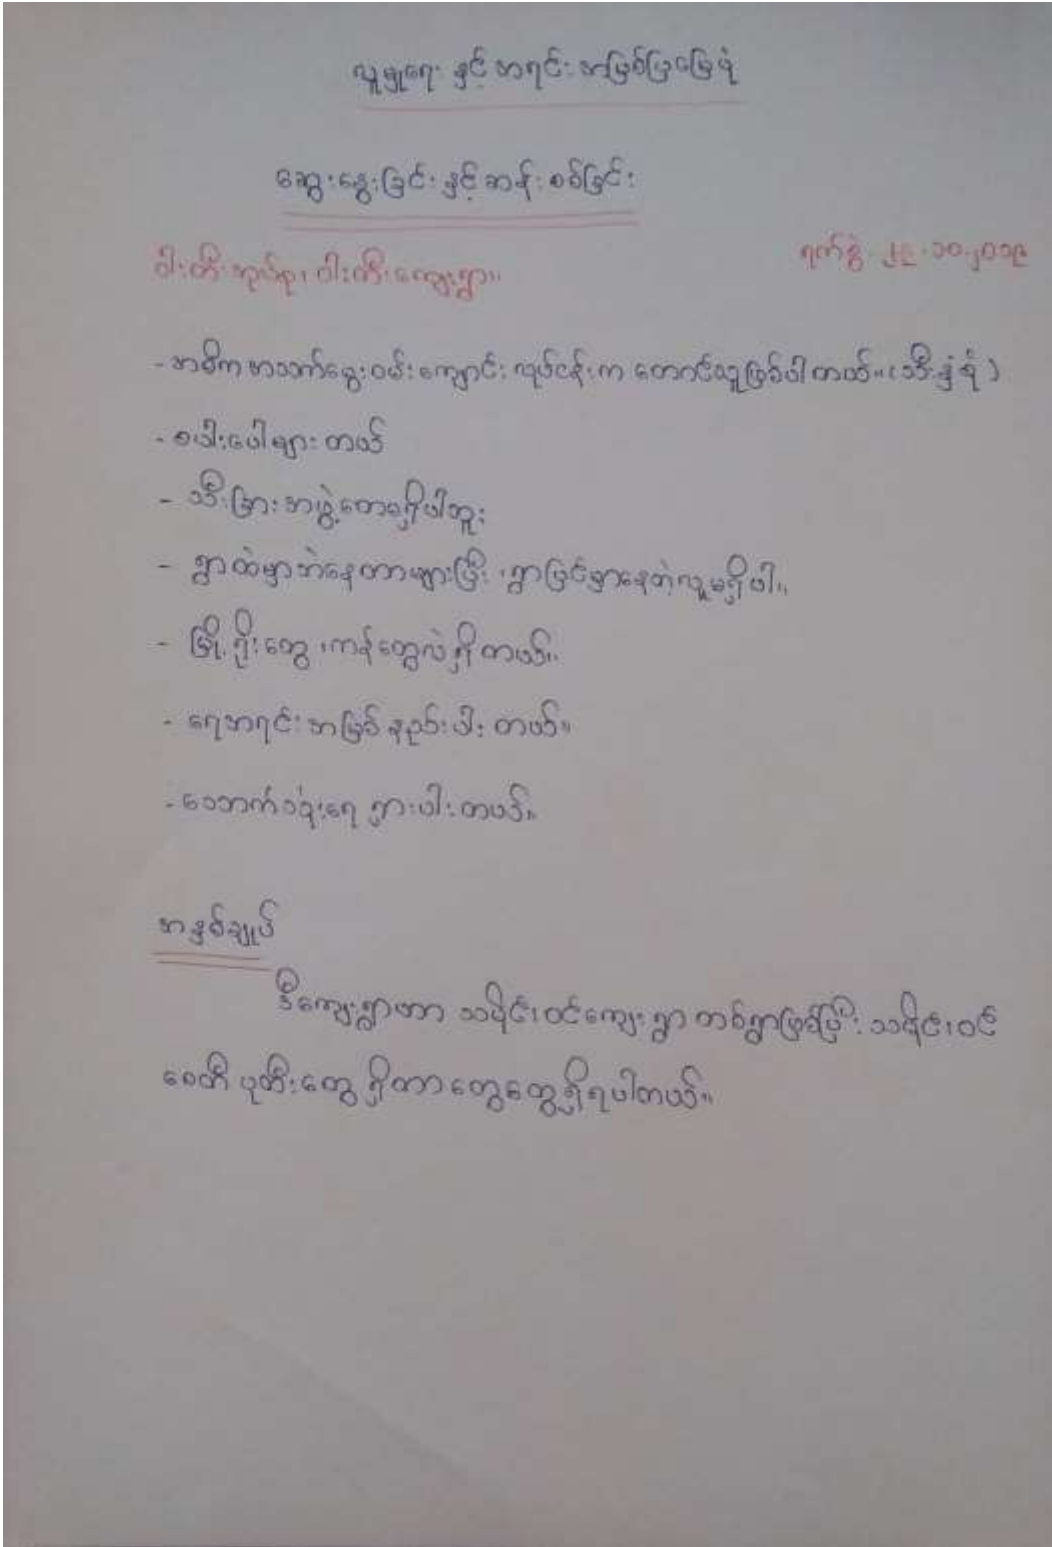 လူမှုရေး နှင့် အရင်း အမြစ်ပြမြေပုံ
ဆွေးနွေးခြင်း နှင့် ဆန်း စစ်ခြင်း
ဝါးတီးအုပ်စု၊ ဝါးတီးကျေးရွာ။
ရက်စွဲ - ၂၄.၁၀.၂၀၁၉
- အဓိက အသက်မွေးဝမ်းကျောင်း လုပ်ငန်းက တောင်သူဖြစ်ပါတယ်။ (သီးနှံစုံ)
- စပါးပေါများတယ်
- သီးခြားအဖွဲ့တေမရှိပါဘူး
- ရွာထဲမှာဘဲနေတာများပြီး ၊ရွာပြင်မှာနေတဲ့လူမရှိပါ။
- မြို့ရိုးတွေ ၊ကန်တွေလဲရှိတယ်။
- ရေအရင်းအမြစ်နည်းပါးတယ်။
- သောက်သုံးရေ ရှားပါးတယ်။
အနှစ်ချုပ်
ဒီကျေးရွာဟာ သမိုင်းဝင်ကျေးရွာ တစ်ရွာဖြစ်ပြီး သမိုင်းဝင်
စေတီ ပုထိုးတွေ ရှိတာတွေတွေ့ရှိရပါတယ်။